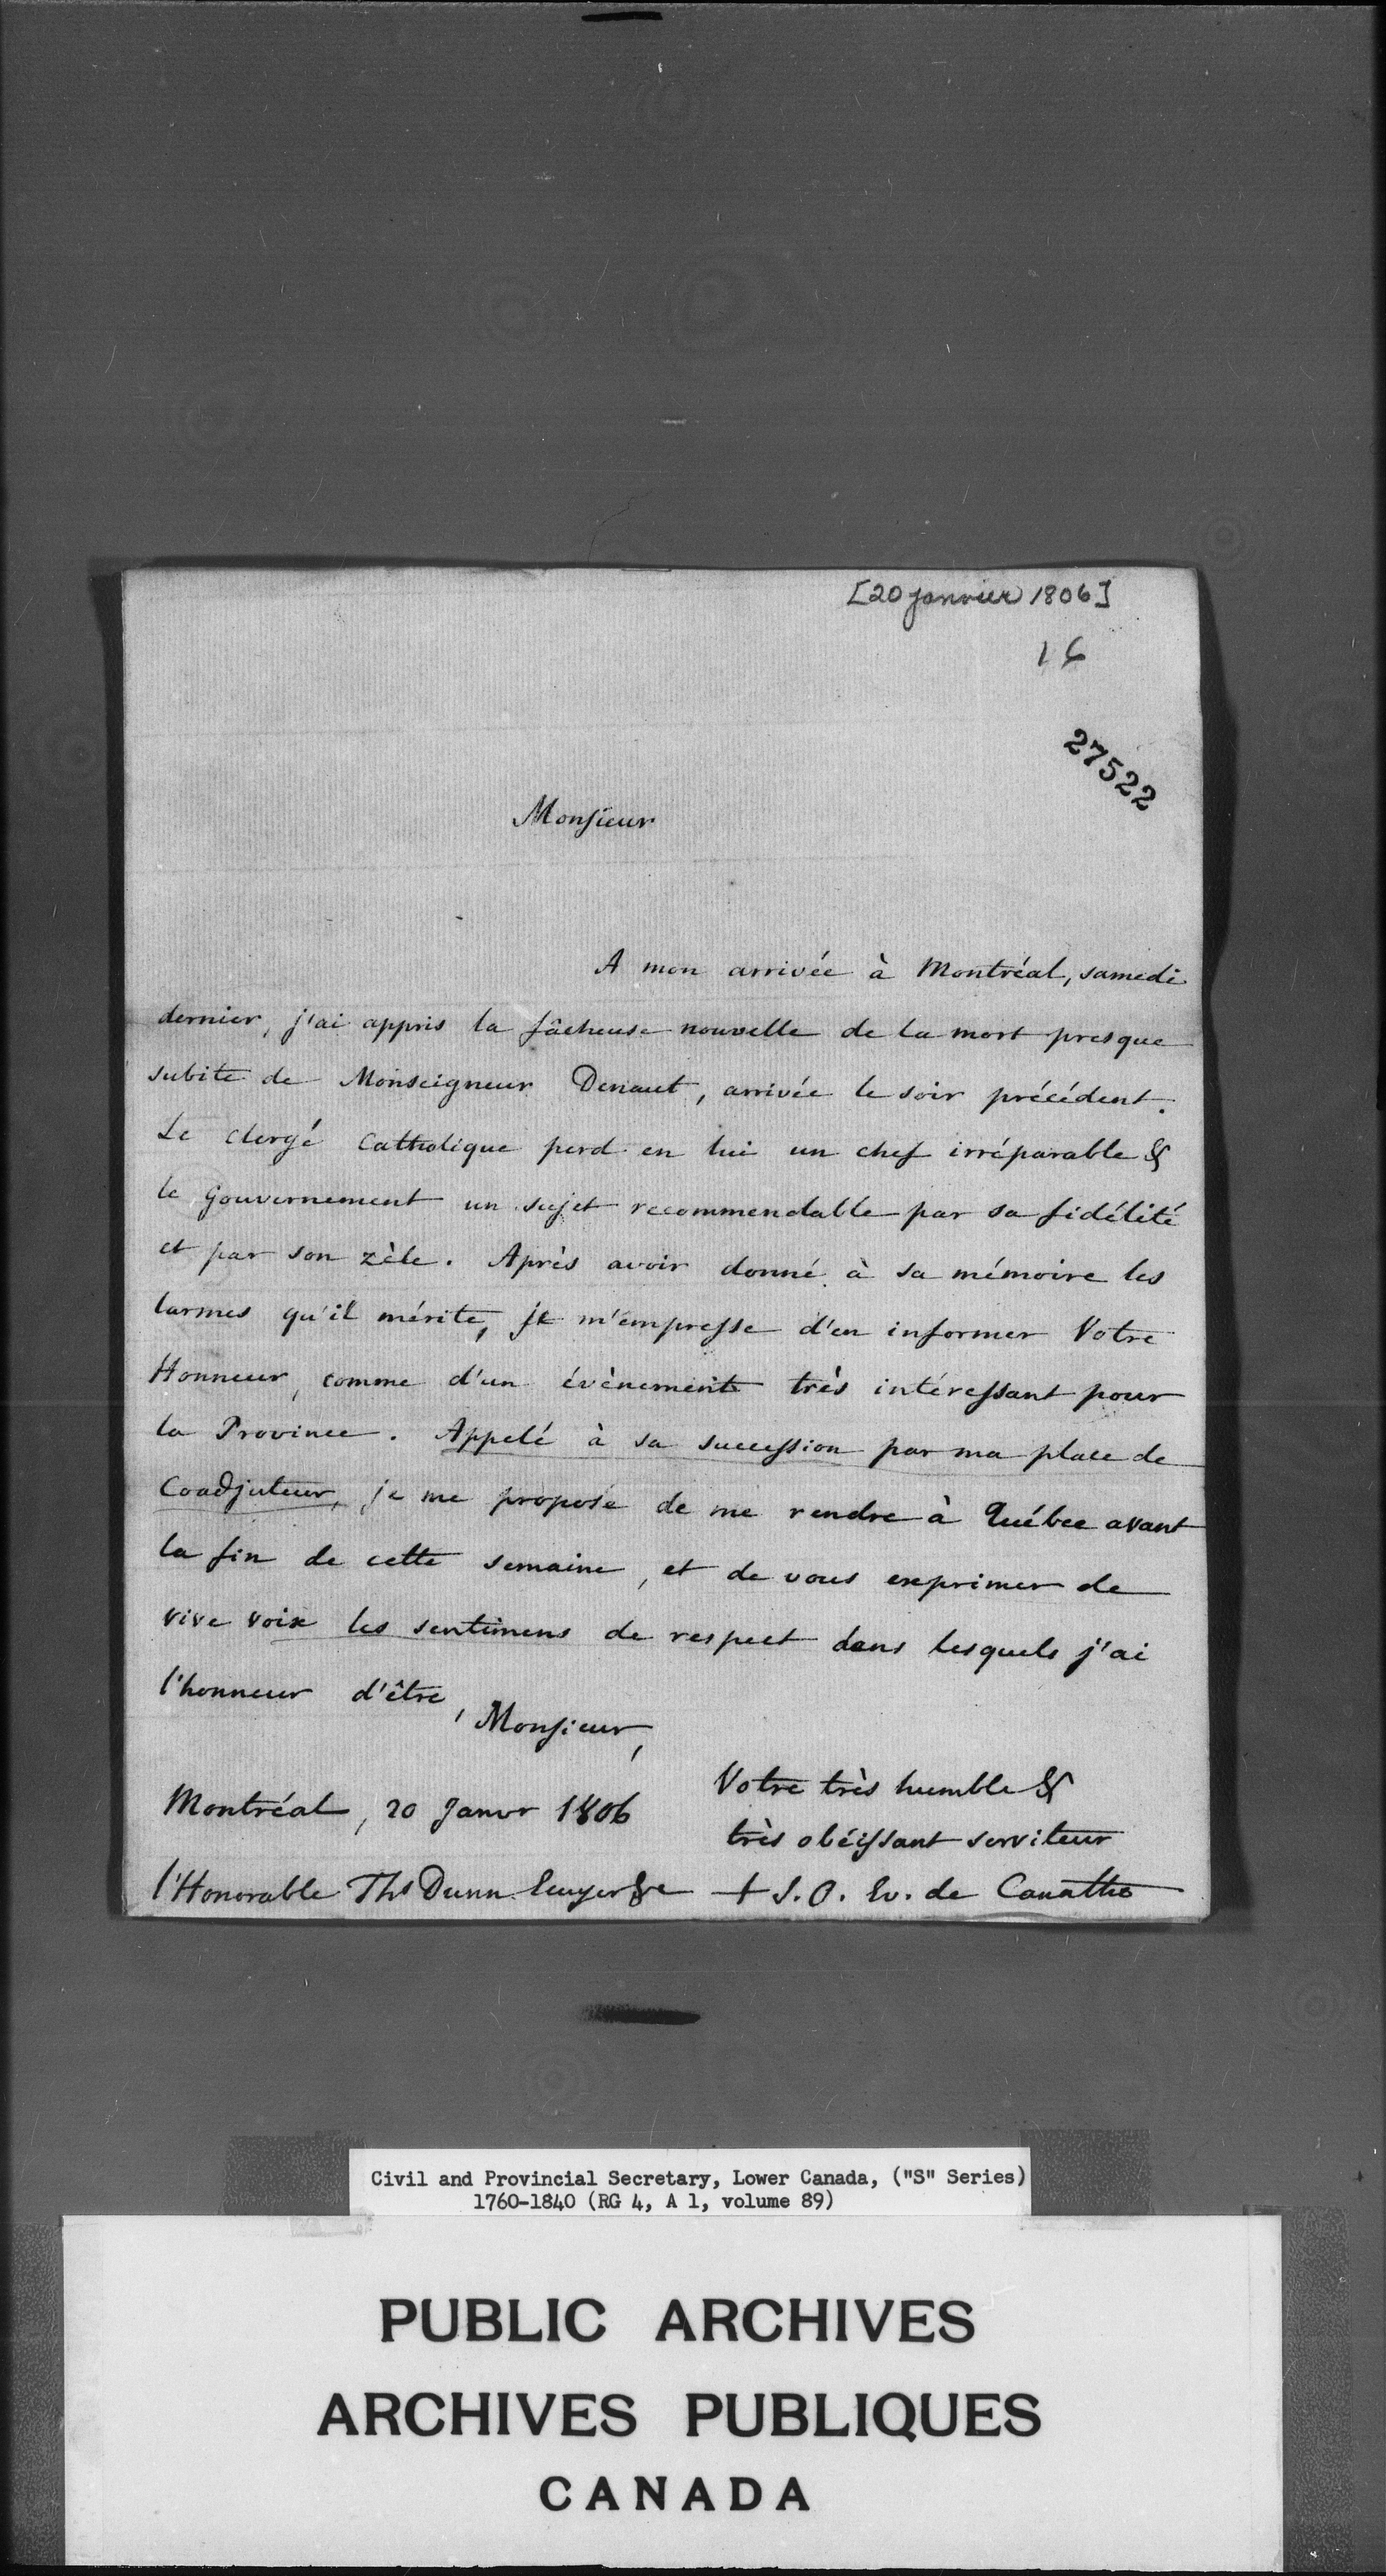 [20 janvier 1806]
16
27522
Monsieur
A mon arrivée à Montréal, samedi
dernier, j'ai appris la fâcheuse nouvelle de la mort presque
subite de Monseigneur Denaut, arrivée le soir précédent.
Le clergé Catholique perd en lui un chef irréparable &
le Gouvernement un sujet recommendable par sa fidélité
et par son zèle. Après avoir donné à sa mémoire les
larmes qu'il mérite, je m'empresse d'en informer Votre
Honneur, comme d'un évènement très intéressant pour
la Province. Appelé à sa succession par ma place de
Coadjuteur, je me propose de me rendre à Québec avant
la fin de cette semaine, et de vous exprimer de
vive voix les sentimens de respect dans lesquels j'ai
l'honneur d'être,
Monsieur,
Votre très humble &
Montréal, 20 Janvr 1806
très obéissant serviteur
l'Honorable Ths Dunn Ecuyer &c
+ J. O. Ev. de Canathe
Civil and Provincial Secretary, Lower Canada, ("S" Series)
1760-1840 (RG 4, A 1, volume 89)
PUBLIC ARCHIVES
ARCHIVES PUBLIQUES
CANADA